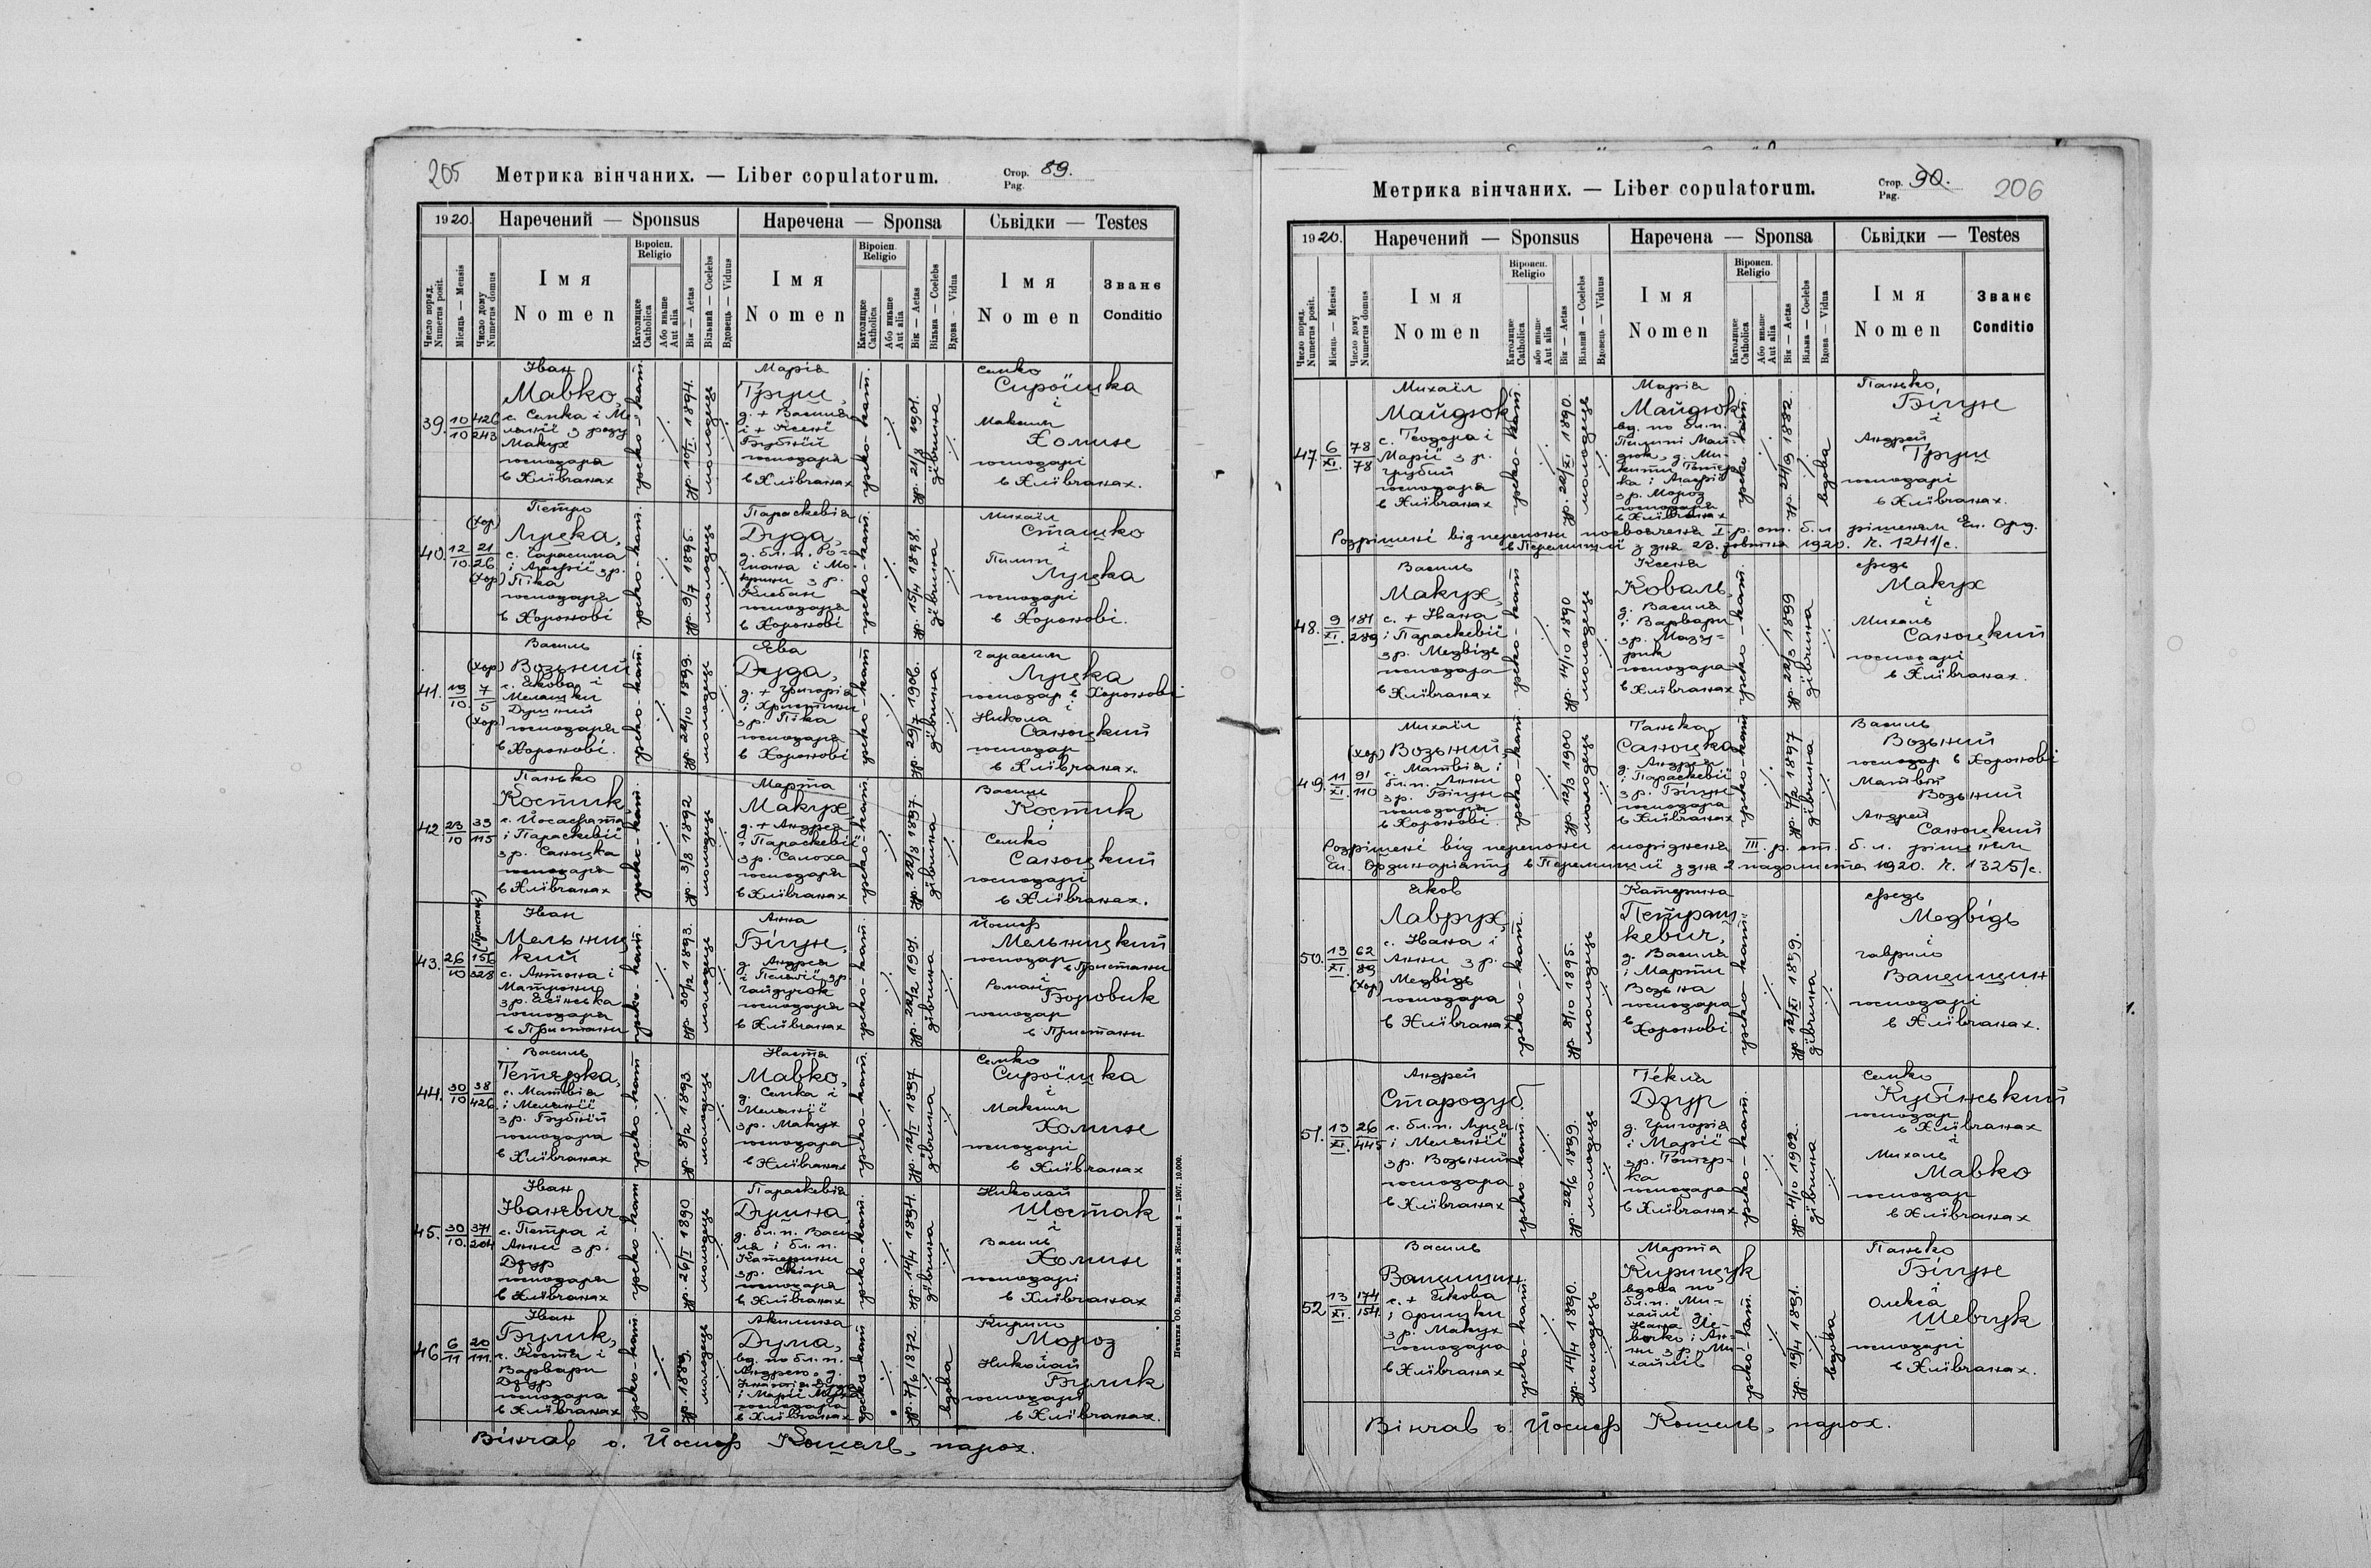 205
Метрика вінчаних. — Liber copulatorum.
Стор. 89.
Pag.
1920.
Наречений — Sponsus
Наречена — Sponsa
Сьвідки — Testes
Число поряд. Numerus posit.
Місяць — Mensis
Число дому Numerus domus
Імя
Nomen
Віроісп.
Religio
Католицке Catholica
Або иньше Aut alia
Вік — Aetas
Вільний — Coelebs
Вдовець — Viduus
Імя
Nomen
Віроісп.
Religio
Католицке Catholica
Або иньше Aut alia
Вік — Aetas
Вільна — Coelebs
Вдова — Vidua
Імя
Nomen
Званє
Conditio
39. 10/10 426/243
Іван
Мавко,
с. Семка і Ме
ланії з роду
Макух
господаря
в Хлївчанах
греко-кат.
ур. 10/I 1894.
молодець
Марія
Груш,
д. + Василя
і + Ксенї
Бубнїй
господаря
в Хлївчанах
греко-кат.
ур. 21/3 1901.
дївчина
Семко
Сироїшка
і
Максим
Холин
господарі
в Хлївчанах.
40. 12/10 (Хор) 21/26 (Хор)
Петро
Луцка,
с. Гарасима
і Агафії з р.
Піка
господаря
в Хоронові
греко-кат.
ур. 9/7 1895.
молодець
Параскевія
Дуда,
д. бл. п. Ро-
мана і Мо-
трини з р.
Клебан
господаря
в Хоронові
греко-кат.
ур. 15/4 1898.
дївчина
Михаіл
Сташко
і
Пилип
Луцка
господарі
в Хоронові.
41. 19/10 (Хор) 7/5 (Хор)
Василь
Возьний
с. Якова і
Меланки
Душний
господаря
в Хоронові.
греко-кат.
ур. 22/10 1899.
молодець
Ева
Дуда,
д. + Григорія
і Христини
з р. Піка
господаря
в Хоронові
греко-кат
ур. 29/7 1906.
дївчина
Гарасим
Луцка
господар в Хоронові
і
Никола
Саноцкий
господар
в Хлївчанах.
42. 23/10 33/115
Панько
Костик
с. Йосафата
і Параскевії
з р. Саноцка
господаря
в Хлївчанах
греко-кат.
ур. 3/8 1892
молодець
Марта
Макух,
д. + Андрея
і Параскевії
з р. Салоха
господаря
в Хлївчанах
греко-кат.
ур. 22/8 1897.
дївчина
Василь
Костик
і
Семко
Саноцкий
господарі
в Хлївчанах.
43. 26/10 156/328 (Пристань)
Іван
Мельниц
кий
с. Антона і
Матрони
з р. Ясїнська
господаря
в Пристани
греко-кат.
ур. 30/12 1893.
молодець
Анна
Бігун,
д. Андрея
і Пелягії з р.
Гайдучок
господаря
в Хлївчанах
греко-кат.
ур. 22/2 1901.
дївчина
Йосиф
Мельницкий
господар
в Пристани
і
Роман
Боровик
господар
в Пристани
44. 30/10 38/426.
Василь
Тетерка,
с. Матвія
і Меланії
з р. Бубнїй
господаря
в Хлївчанах
греко-кат
ур. 8/2 1893
молодець
Настя
Мавко,
д. Семка і
Меланії
з р. Макух
господаря
в Хлївчанах
греко-кат.
ур. 12/I 1897
дївчина
Семко
Сироїшка
і
Максим
Холин
господарі
в Хлївчанах
45. 30/10. 371/204
Іван
Іваневич
с. Петра і
Анни з р.
Дзур
господаря
в Хлївчанах
греко-кат
ур. 26/I 1890
молодець
Параскевія
Душна,
д. бл. п. Васи
ля і бл. п.
Катерини
з р.
господаря
в Хлївчанах
греко-кат.
ур. 14/4 1894.
дївчина
Николай
Шостак
і
Василь
Холин
господарі
в Хлївчанах
46 6/11 20/111.
Іван
Булик,
с. Костя і
Варвари
Дзур
господаря
в Хлївчанах
греко-кат.
ур. 1889.
молодець
Акилина
Дума,
вд. по бл. п.
Андрею, д.
і Марії
господаря
в Хлївчанах
греко-кат
ур. 7/6 1872.
вдова
Кирило
Мороз
і
Николай
Булик
господарі
в Хлївчанах.
Вінчав о. Йосиф Кошаль, парох.
Печатня ОО. Василиян в Жовкві. 2 — 1907. 10.000.
Метрика вінчаних. — Liber copulatorum.
Стор. 90.
Pag.
206
1920.
Наречений — Sponsus
Наречена — Sponsa
Сьвідки — Testes
Число поряд. Numerus posit.
Місяць — Mensis
Число дому Numerus domus
Імя
Nomen
Віроисп.
Religio
Католицке Catholica
або иньше Aut alia
Вік — Aetas
Вільний — Coelebs
Вдовець — Viduus
Імя
Nomen
Віроисп.
Religio
Католицке Catholica
Або иньше Aut alia
Вік — Aetas
Вільна — Coelebs
Вдова — Vidua
Імя
Nomen
Званє
Conditio
47. 6/XI. 78/78
Михаіл
Майдзюк
с. Теодора і
Марії з р.
Грубий
господаря
в Хлївчанах
греко-кат.
ур. 22/XI 1890.
молодець
Марія
Майдзюк
вд. по бл. п.
Пилипі Май
дзюк, д. Ми-
кити Тетер
ка і Агафії
з р. Мороз
господаря
в Хлївчанах
греко-кат.
ур. 24/9 1882.
вдова
Панько,
Бігун
і
Андрей
Груш
господарі
в Хлївчанах.
Розрішені від перепони посвоячення I р. ст. б. л. рішенєм Еп. Орд.
в Перемишлї з дня 23. жовтня 1920. Ч. 1241/с.
48. 9/XI. 181/289
Василь
Макух,
с. + Івана
і Параскевії
з р. Медвідь
господаря
в Хлївчанах
греко-кат
ур. 14/10 1890
молодець
Ксеня
Коваль,
д. Василя
і Варвари
з р. Мазу-
рик
господаря
в Хлївчанах
греко-кат.
ур. 22/3 1899
дївчина
Федь
Макух
і
Михаль
Саноцкий
господарі
в Хлївчанах.
49. 11/XI. (Хор) 91/110
Михаіл
Возьний,
с. Матвія і
бл. п. Анни
з р. Бігун
господаря
в Хоронові
греко-кат.
ур. 12/3 1900
молодець
Танька
Саноцка,
д. Андрея
і Параскевії
з р. Бігун
господаря
в Хлївчанах
греко-кат
ур. 7/2 1897
дївчина
Василь
Возьний
господар в Хоронові
Матвій
Возьний
Андрей
Саноцкий
Розрішені від перепони споріднення III. р. ст. б. л. рішенєм
Еп. Ординаріяту в Перемишлї з дня 2 падолиста 1920. Ч. 1325/с.
50. 13/XI. 62/89 (Хор)
Яков
Лаврух,
с. Івана і
Анни з р.
Медвідь
господаря
в Хлївчанах
греко-кат.
ур. 8/10 1895.
молодець
Катерина
Петраш
кевич,
д. Василя
і Марти
Возьна
господаря
в
Хоронові
греко-кат.
ур 12/XI 1899.
дївчина
Федь
Медвідь
і
Гаврило
Ванчишин
господарі
в Хлївчанах.
51. 13/XI. 26/445
Андрей
Стародуб
с. бл. п. Луця
і Меланії
з р. Возьний
господаря
в Хлївчанах
греко-кат.
ур. 22/6 1899.
молодець
Текля
Дзур
д. Григорія
і Марії
з р. Тетер-
ка
господаря
в Хлївчанах
греко-кат.
ур. 4/10 1902.
дївчина
Семко
Кубінський
господар
в Хлївчанах
і
Михаль
Мавко
господар
в Хлївчанах
52 13/XI. 174/154
Василь
Ванчишин
с. + Якова
і Оришки
з р. Макух
господаря
в Хлївчанах
греко-кат.
ур. 14/4 1890.
молодець
Марта
Киринчук
вдова по
бл. п. Ми-
хайлї д.
Івана Ле-
вочко і Ан-
ни з р. Ми
хайлів
греко-кат.
ур. 19/4 1891.
вдова
Панько
Бігун
і
Олекса
Шевчук
господарі
в Хлївчанах.
Вінчав о. Йосиф Кошаль, парох.